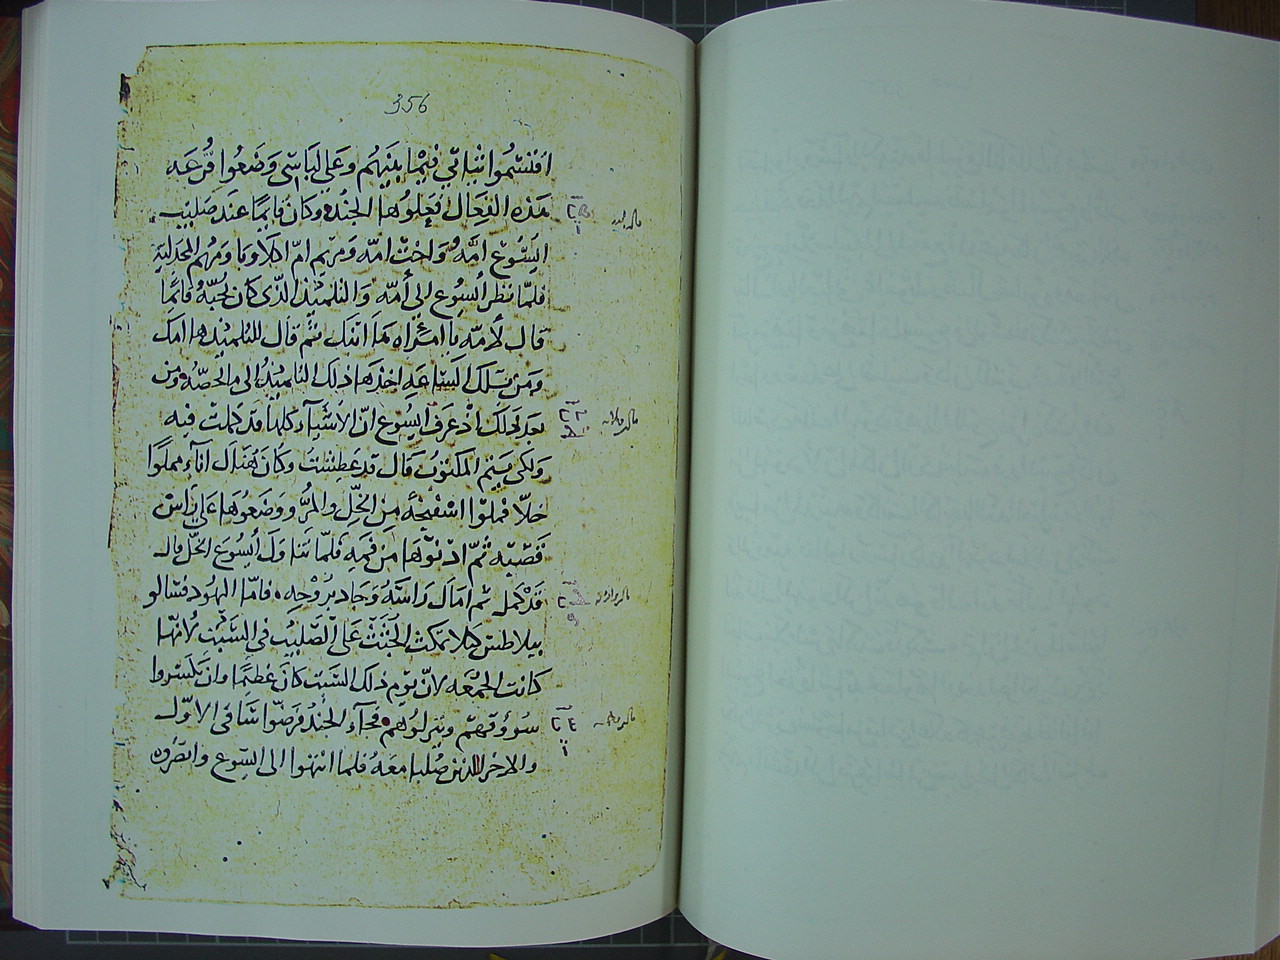 356
اقتسموا ثيابي فيما بينهم وعلى لباسي وضعوا قرعه
هذه الفعال فعلوها الجند وكان قايمًا عند صليب
ايسُوع امّه واخت امّه ومريم امّ اكلاوبا ومريم المجدلية
فلمّا نظر أيسوع الى أمّه والتلميذ الذى كان يحبّه قائمًا
قال لأمّه يا امرأه هذا ابنك ثم قال للتلميذ ها امك
ومن تلك الساعه اخذها ذلك التلميذ الى
بعد ذلك اذ عرف ايسوع انّ الأشيآء كلها قد كملت فيه
ولكى يتم المكتوب قال قد عطشت وكان هناك انآء مملوا
خلّا فملوا اسفنجه من الخلّ والمرّ ووضعوها على راس
قصبه ثمّ ادنوها من فمه فلمّا تناول أيسوع الخلّ قال
قد كمل ثم امال راسه وجاد بروحه فامّا اليهود فسالو
بيلاطس كيلا تمكث الجثث على الصّليب في السّبت لأنّها
كانت الجمعه لانّ يوم ذلك السبت كان عظيمًا وان يكسروا
سوؤقهم وينزلوهم فجآء الجند فرضّوا ساقى الاوّل
والاخر اللذين صلبا معه فلما انتهوا الى ايسوع وابصروه